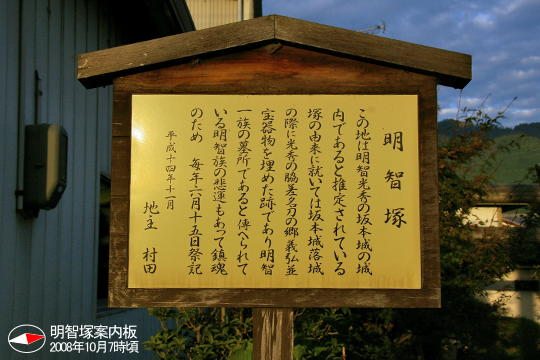 明智塚
この地は明智光秀の坂本城の城
内であると推定されている
塚の由来に就いては坂本城落城
の際に光秀の脇差名刀の郷義弘並
宝器物を埋めた跡であり明智
一族の墓所であると傳へられて
いる明智族の悲運もあって鎮魂
のため 毎年六月十五日祭記
平成十四年十二月
地主 村田
明智塚案内板
2008年10月7時頃